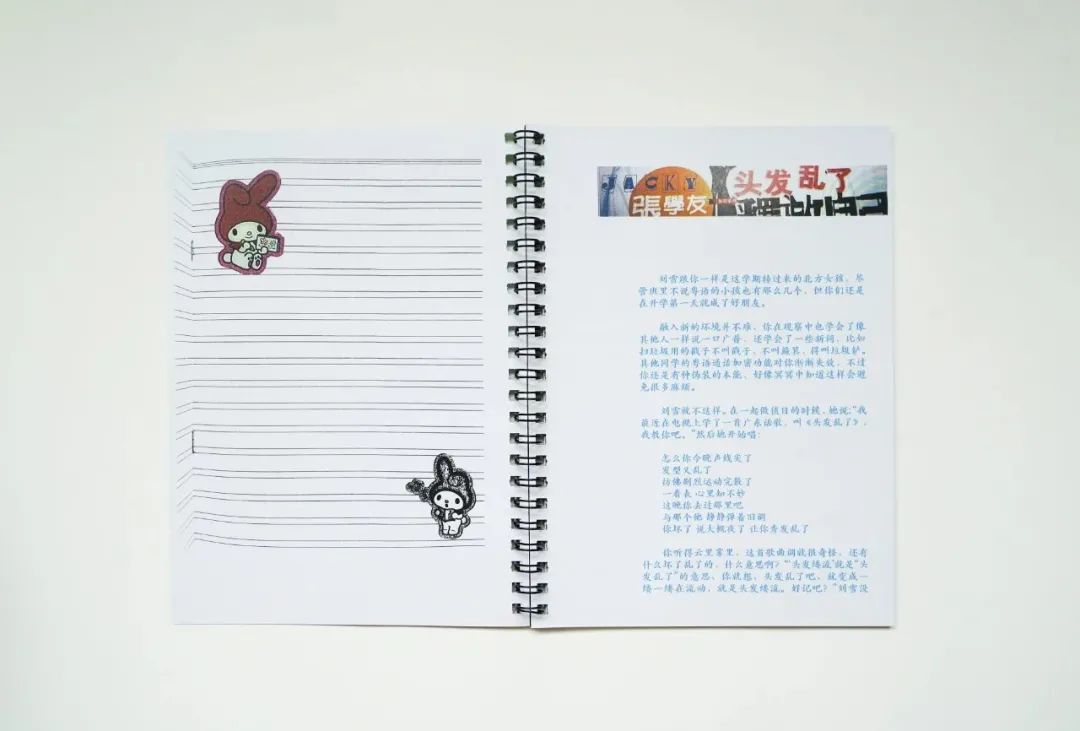 JACKY
張學友
头发乱了
刘雪跟你一样是这学期转过来的北方女孩，尽
管班里不说粤语的小孩也有那么几个，但你们还是
在开学第一天就成了好朋友。
融入新的环境并不难，你在观察中也学会了像
其他人一样说一口广普，还学会了一些新词，比如
扫垃圾用的戳子不叫戳子，不叫簸箕，得叫垃圾铲。
其他同学的粤语通话加密功能对你渐渐失效，不过
你还是有种伪装的本能，好像冥冥中知道这样会避
免很多麻烦。
刘雪就不这样。在一起做值日的时候，她说：“我
最近在电视上学了一首广东话歌，叫《头发乱了》，
我教你吧。”然后她开始唱：
怎么你今晚声线尖了
发型又乱了
彷佛剧烈运动完毅了
一看表 心里知不妙
这晚你去过那里吧
与那个他 静静弹着旧调
你坏了 说大概夜了 让你秀发乱了
你听得云里雾里，这首歌曲调就很奇怪，还有
什么坏了乱了的，什么意思啊？“‘头发缕流’就是‘头
发乱了’的意思，你就想，头发乱了吧，就变成一
缕一缕在流动，就是头发缕流。好记吧？”刘雪没